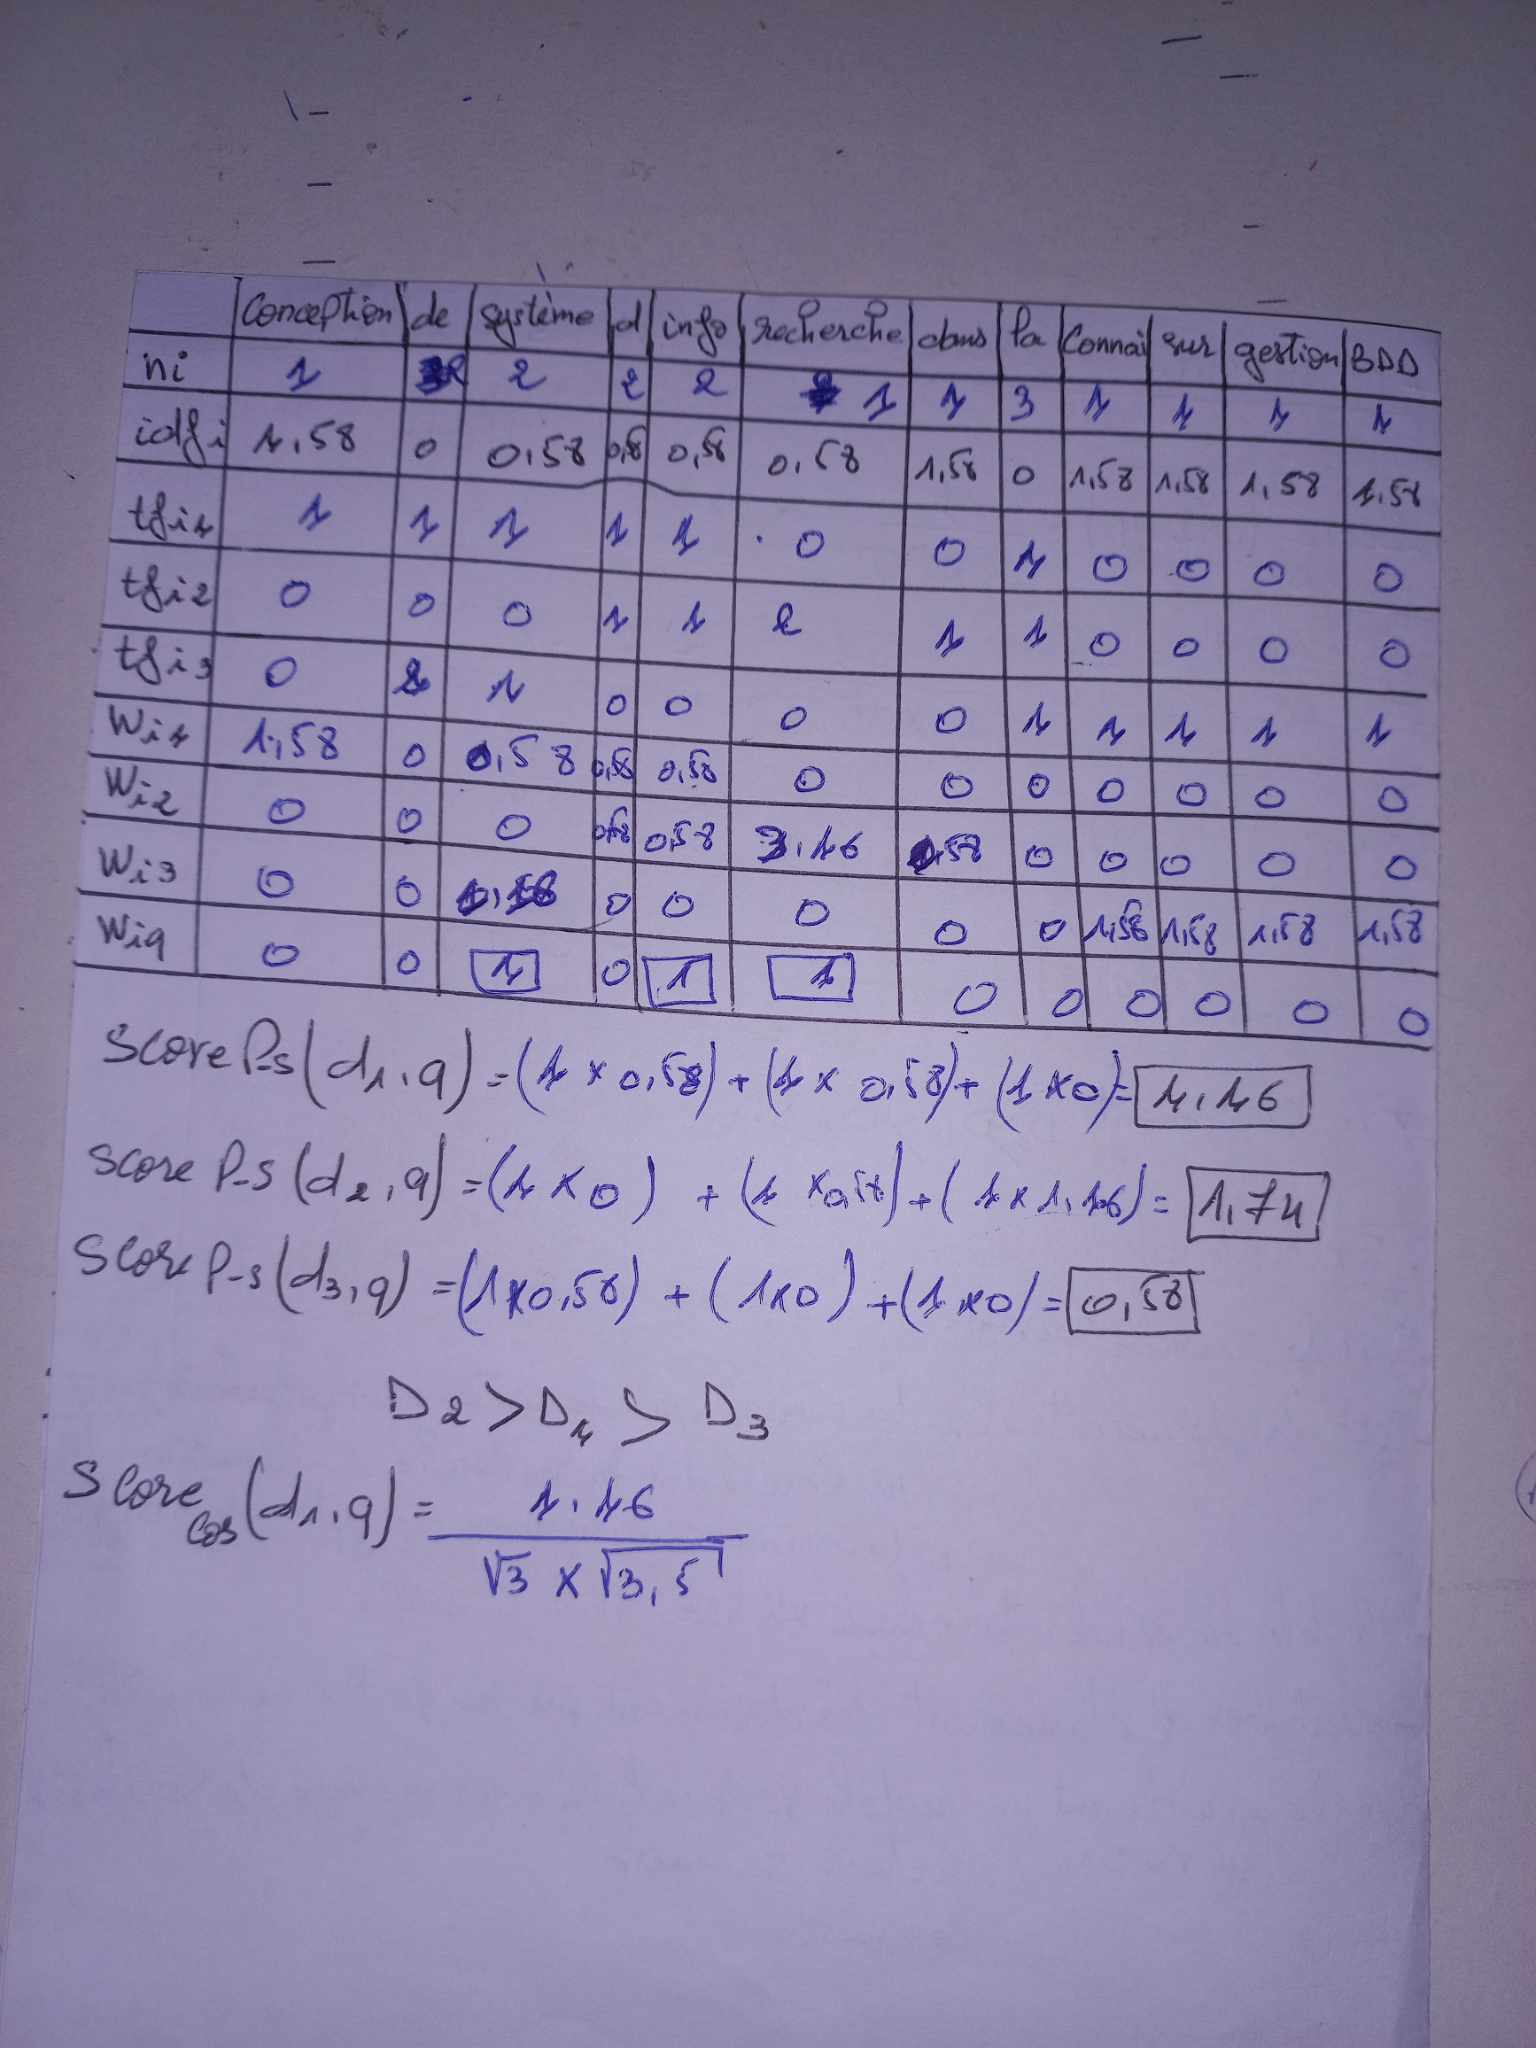 Conception de système d info recherche dans la Connai sur gestion BDD
ni 1 2 2 2 2 1 1 3 1 1 1 1
idfi 1,58 0 0,58 0,58 0,58 0,58 1,58 0 1,58 1,58 1,58 1.58
tfi1 1 1 1 1 1 0 0 1 0 0 0 0
tfi2 0 0 0 1 1 2 1 1 0 0 0 0
tfi3 0 2 1 0 0 0 0 1 1 1 1 1
Wi1 1,58 0 0,58 0,58 0,58 0 0 0 0 0 0 0
Wi2 0 0 0 0,58 0,58 3.16 ,58 0 0 0 0 0
Wi3 0 0 0 0 0 0 0 1,58 1,58 1,58 1,58
Wiq 0 0 1 0 1 1 0 0 0 0 0 0
Score P-s (d1,q) = (1 x 0,58) + (1 x 0,58) + (1 x 0) = 1.16
Score P-S (d2,q) = (1 x 0) + (1 x 0,58) + (1 x 1,16) = 1,74
Score P-s (d3,q) = (1x0,58) + (1x0) + (1 x0) = 0,58
D2 > D1 > D3
Score cos (d1,q) = 1.16
√3 x √3,5